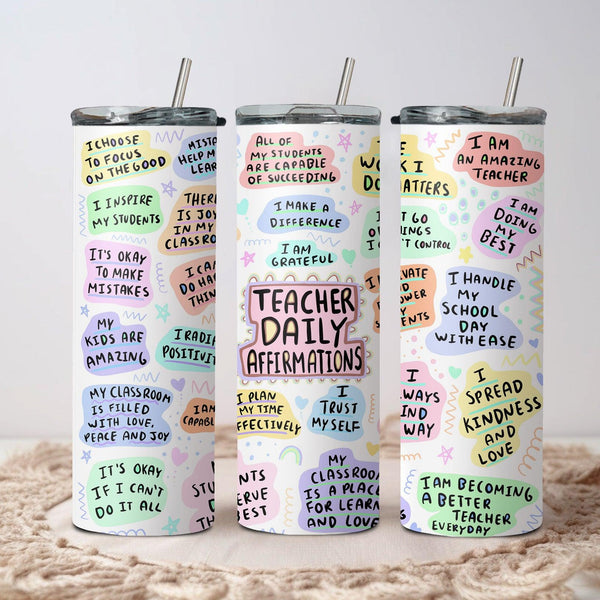 I CHOOSE
TO FOCUS
ON THE GOOD
HELP M
LEAR
I INSPIRE
MY STUDENTS
THER
IS JOY
IN MY
CLASSROO
IT'S OKAY
TO MAKE
MISTAKES
I CA
DO HA
THIN
MY
KIDS ARE
AMAZING
I RADIA
POSITIVIT
MY CLASSROOM
IS FILLED
WITH LOVE,
PEACE AND JOY
I AM
CAPABL
IT'S OKAY
IF I CAN'T
DO IT ALL
STU
D
TH
ALL OF
MY STUDENTS
ARE CAPABLE
OF SUCCEEDING
I MAKE A
DIFFERENCE
I AM
GRATEFUL
TEACHER
DAILY
AFFIRMATIONS
I PLAN
MY TIME
EFFECTIVELY
I
TRUST
MYSELF
NTS
ERVE
BEST
MY
CLASSROOM
IS A PLACE
FOR LEARN
AND LOVE
E
WORK I
DO MATTERS
I AM
AN AMAZING
TEACHER
T GO
OF THINGS
I CAN'T CONTROL
I AM
DOING
MY
BEST
VATE
AND
OWER
MY
ENTS
I HANDLE
MY
SCHOOL
DAY
WITH EASE
I
LWAYS
IND
WAY
I
SPREAD
KINDNESS
AND
LOVE
I AM BECOMING
A BETTER
TEACHER
EVERYDAY